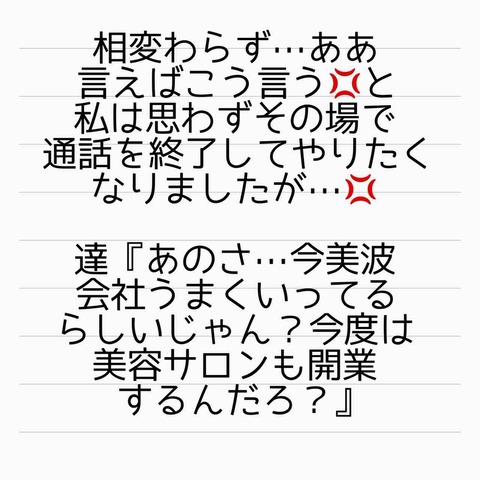 相変わらず…ああ
言えばこう言う💢と
私は思わずその場で
通話を終了してやりたく
なりましたが…💢
達『あのさ…今美波
会社うまくいってる
らしいじゃん？今度は
美容サロンも開業
するんだろ？』